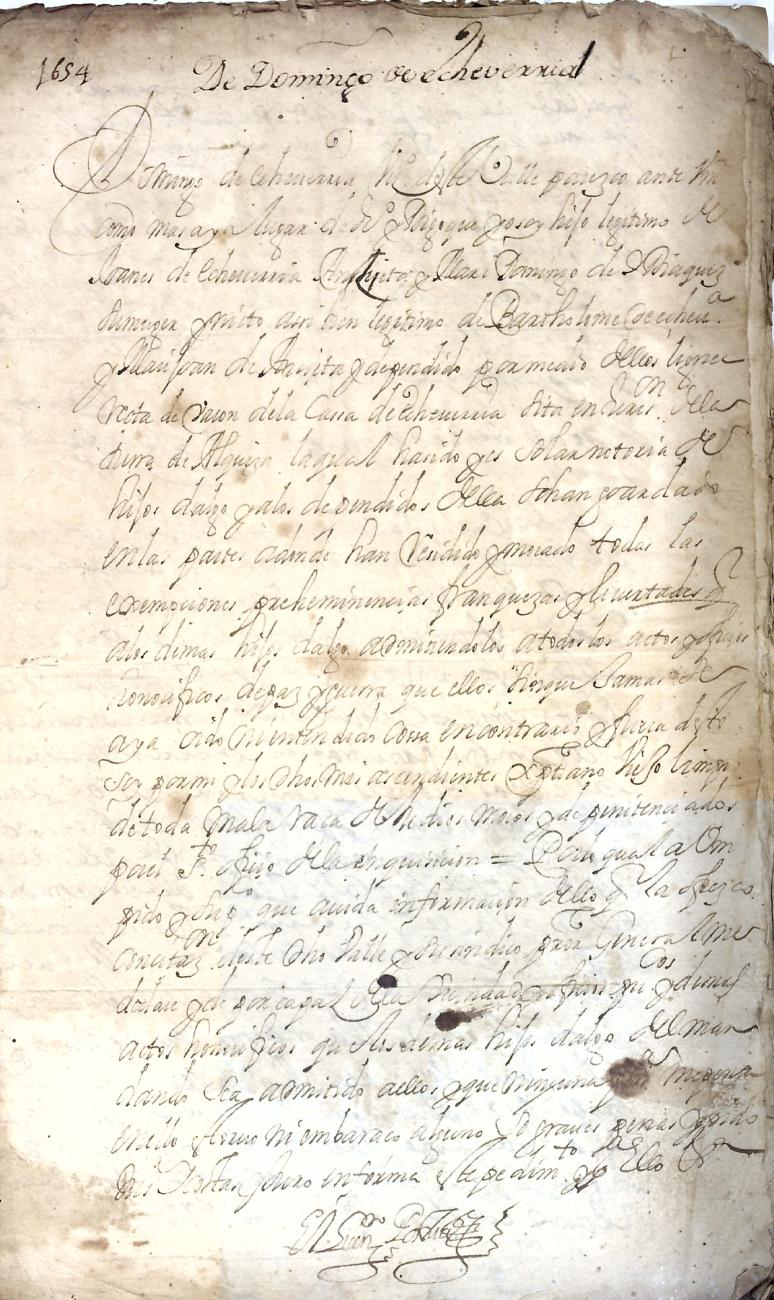 1654
De Domingo de echeverria
Domingo de echeverria Vº deste Valle parezco ante Vm
como mas aya lugar de drº y digo que yo soy hijo legitimo de
Joanes de echeverria y Mari Domingo de
su muger y nieto asi bien legitimo de Bartholome de echevª
y Mari Joan de dependido por medio dellos linea
recta de Varon dela Cassa de echeverria sita en della
tierra de Alquiza laqual ha sido y es solar notoria de
hijos dalgo y alos dependidos della sehan guardado
enlas partes adonde han Vesidido y morado todas las
exempciones preheminencias franquezas y livertades q
alos demas hijos dalgo admitiendolos atodos los actos y oficios
honorificos de paz y guerra que ellos sin que Jamas se
aya oido ni entendido cossa encontrario y fuera desto
soy por mi y los dhos mis ascendientes Xptiano biejo limpio
detoda mala raca de Judios moros y de penitenciados
por el Stº oficio dela ynquisicion = Por lo qual a Vm
pido y supº que avida informacion dello q la ofrezco
con citazºn deste dho Valle y su sindico pror General me
declare y de por capaz dela Vecindad oficios ppcos y demas
actos honorificos que los demas hijos dalgo del man
dando sea admitido aellos y que ninguna perª me ponga
enello estorvo ni embaraco alguno so graves penas y pido
Justicia y Juro en forma este pedimto y ello &ª